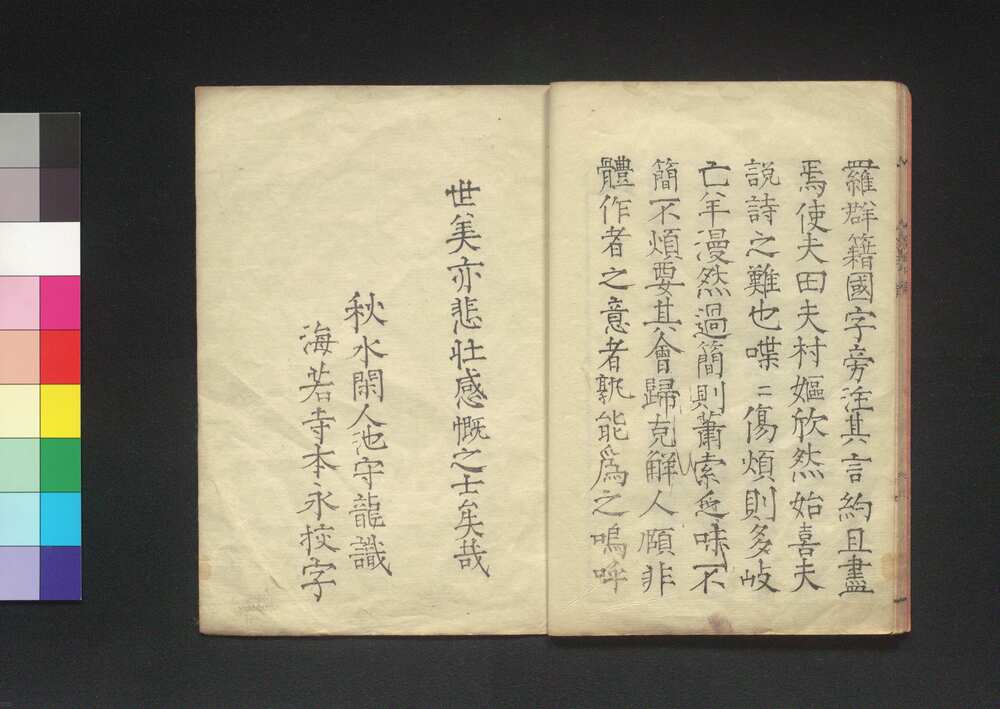 羅群籍國字旁注其言約且盡
焉使夫田夫村嫗欣然始喜夫
說詩之難也喋〻傷煩則多岐
亡羊漫然過簡則蕭索乏味不
簡不煩要其會歸克解人頤非
體作者之意者孰能爲之嗚呼
世美亦悲壯感慨之士矣哉
秋水閑人池守龍識
海若寺本永校字